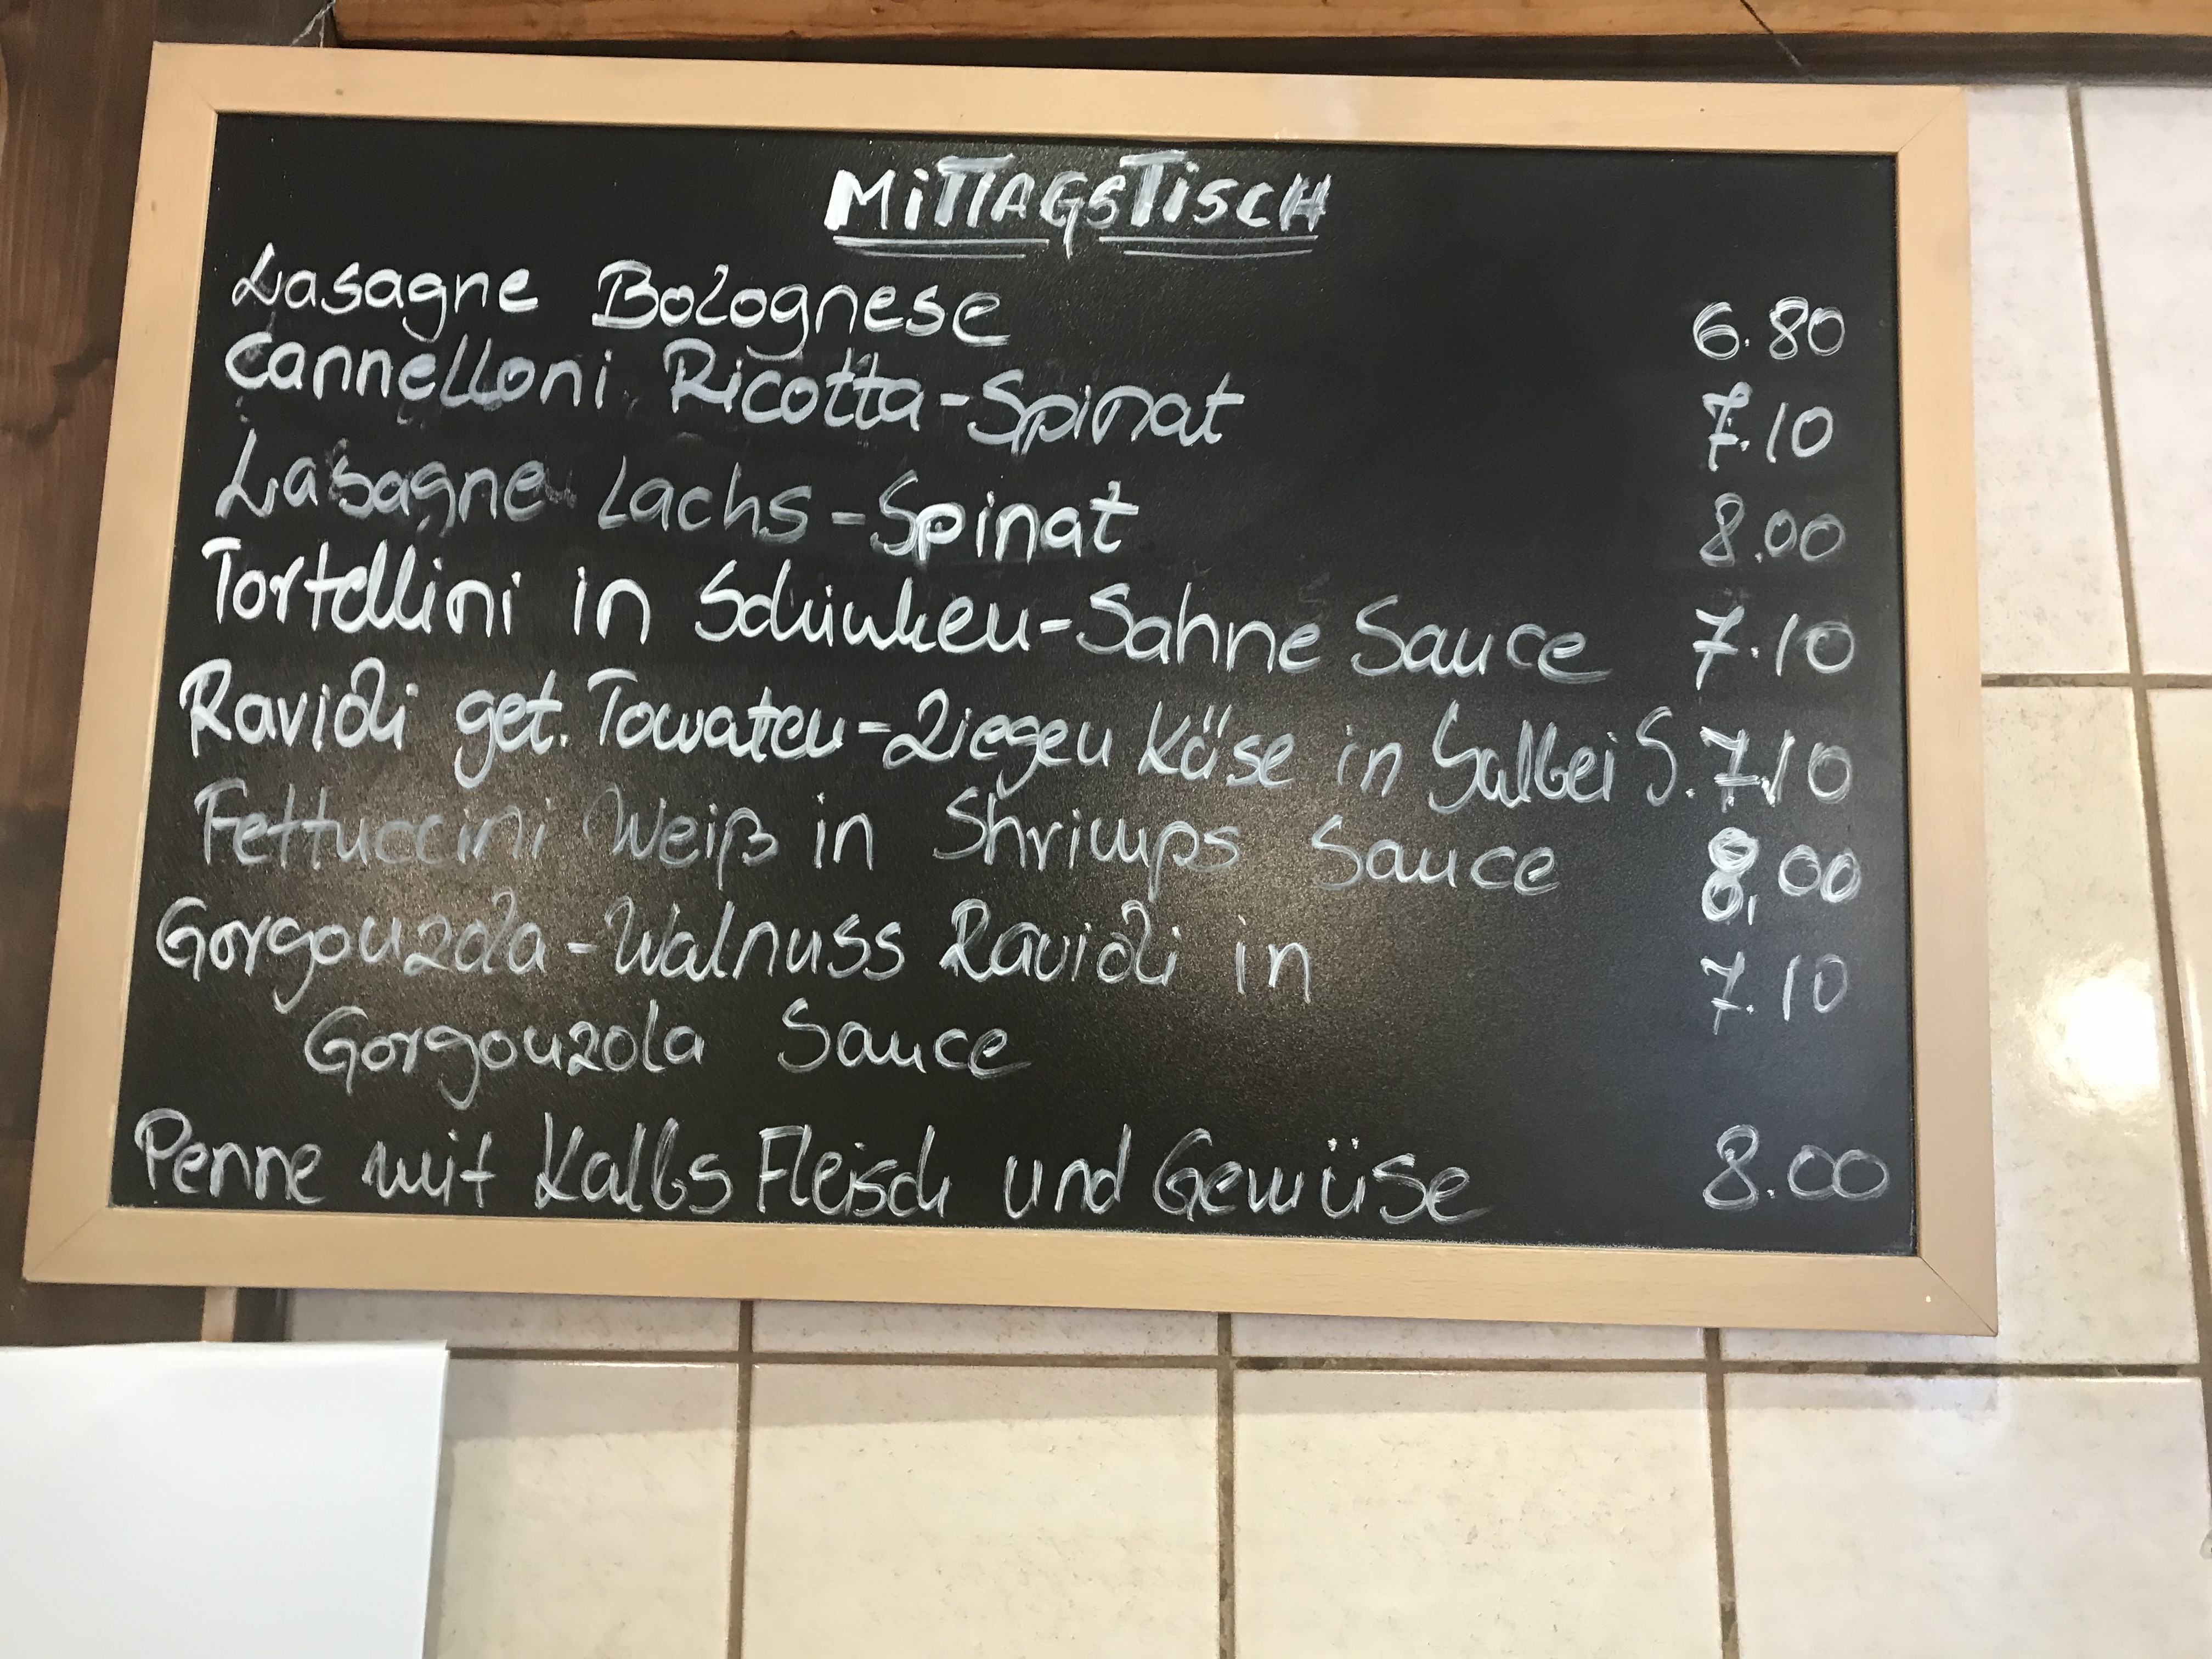 MITTAGSTISCH
Lasagne Bolognese 6.80
Cannelloni Ricotta-Spinat 7.10
Lasagne Lachs-Spinat 8.00
Tortellini in Schinken-Sahne Sauce 7.10
Ravioli get. Tomaten-Ziegen Käse in Salbei S. 7.10
Fettuccini Weiß in Shrimps Sauce 8.00
Gorgonzola-Walnuss Ravioli in 7.10
Gorgonzola Sauce
Penne mit Kalbs Fleisch und Gemüse 8.00